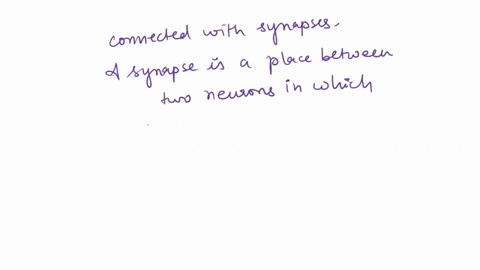 connected with synapses.
A synapse is a place between
two neurons in which